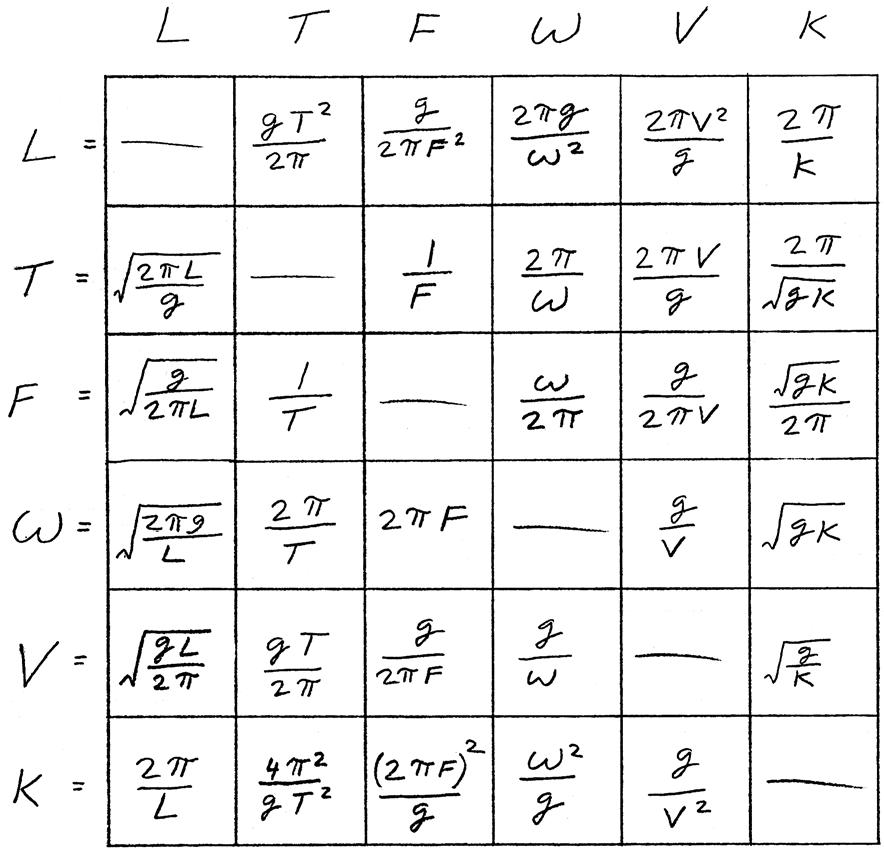 L T F ω V K
L = — gT²/2π g/2πF² 2πg/ω² 2πV²/g 2π/K
T = √(2πL/g) — 1/F 2π/ω 2πV/g 2π/√(gK)
F = √(g/2πL) 1/T — ω/2π g/2πV √(gK)/2π
ω = √(2πg/L) 2π/T 2πF — g/V √(gK)
V = √(gL/2π) gT/2π g/2πF g/ω — √(g/K)
K = 2π/L 4π²/gT² (2πF)²/g ω²/g g/V² —